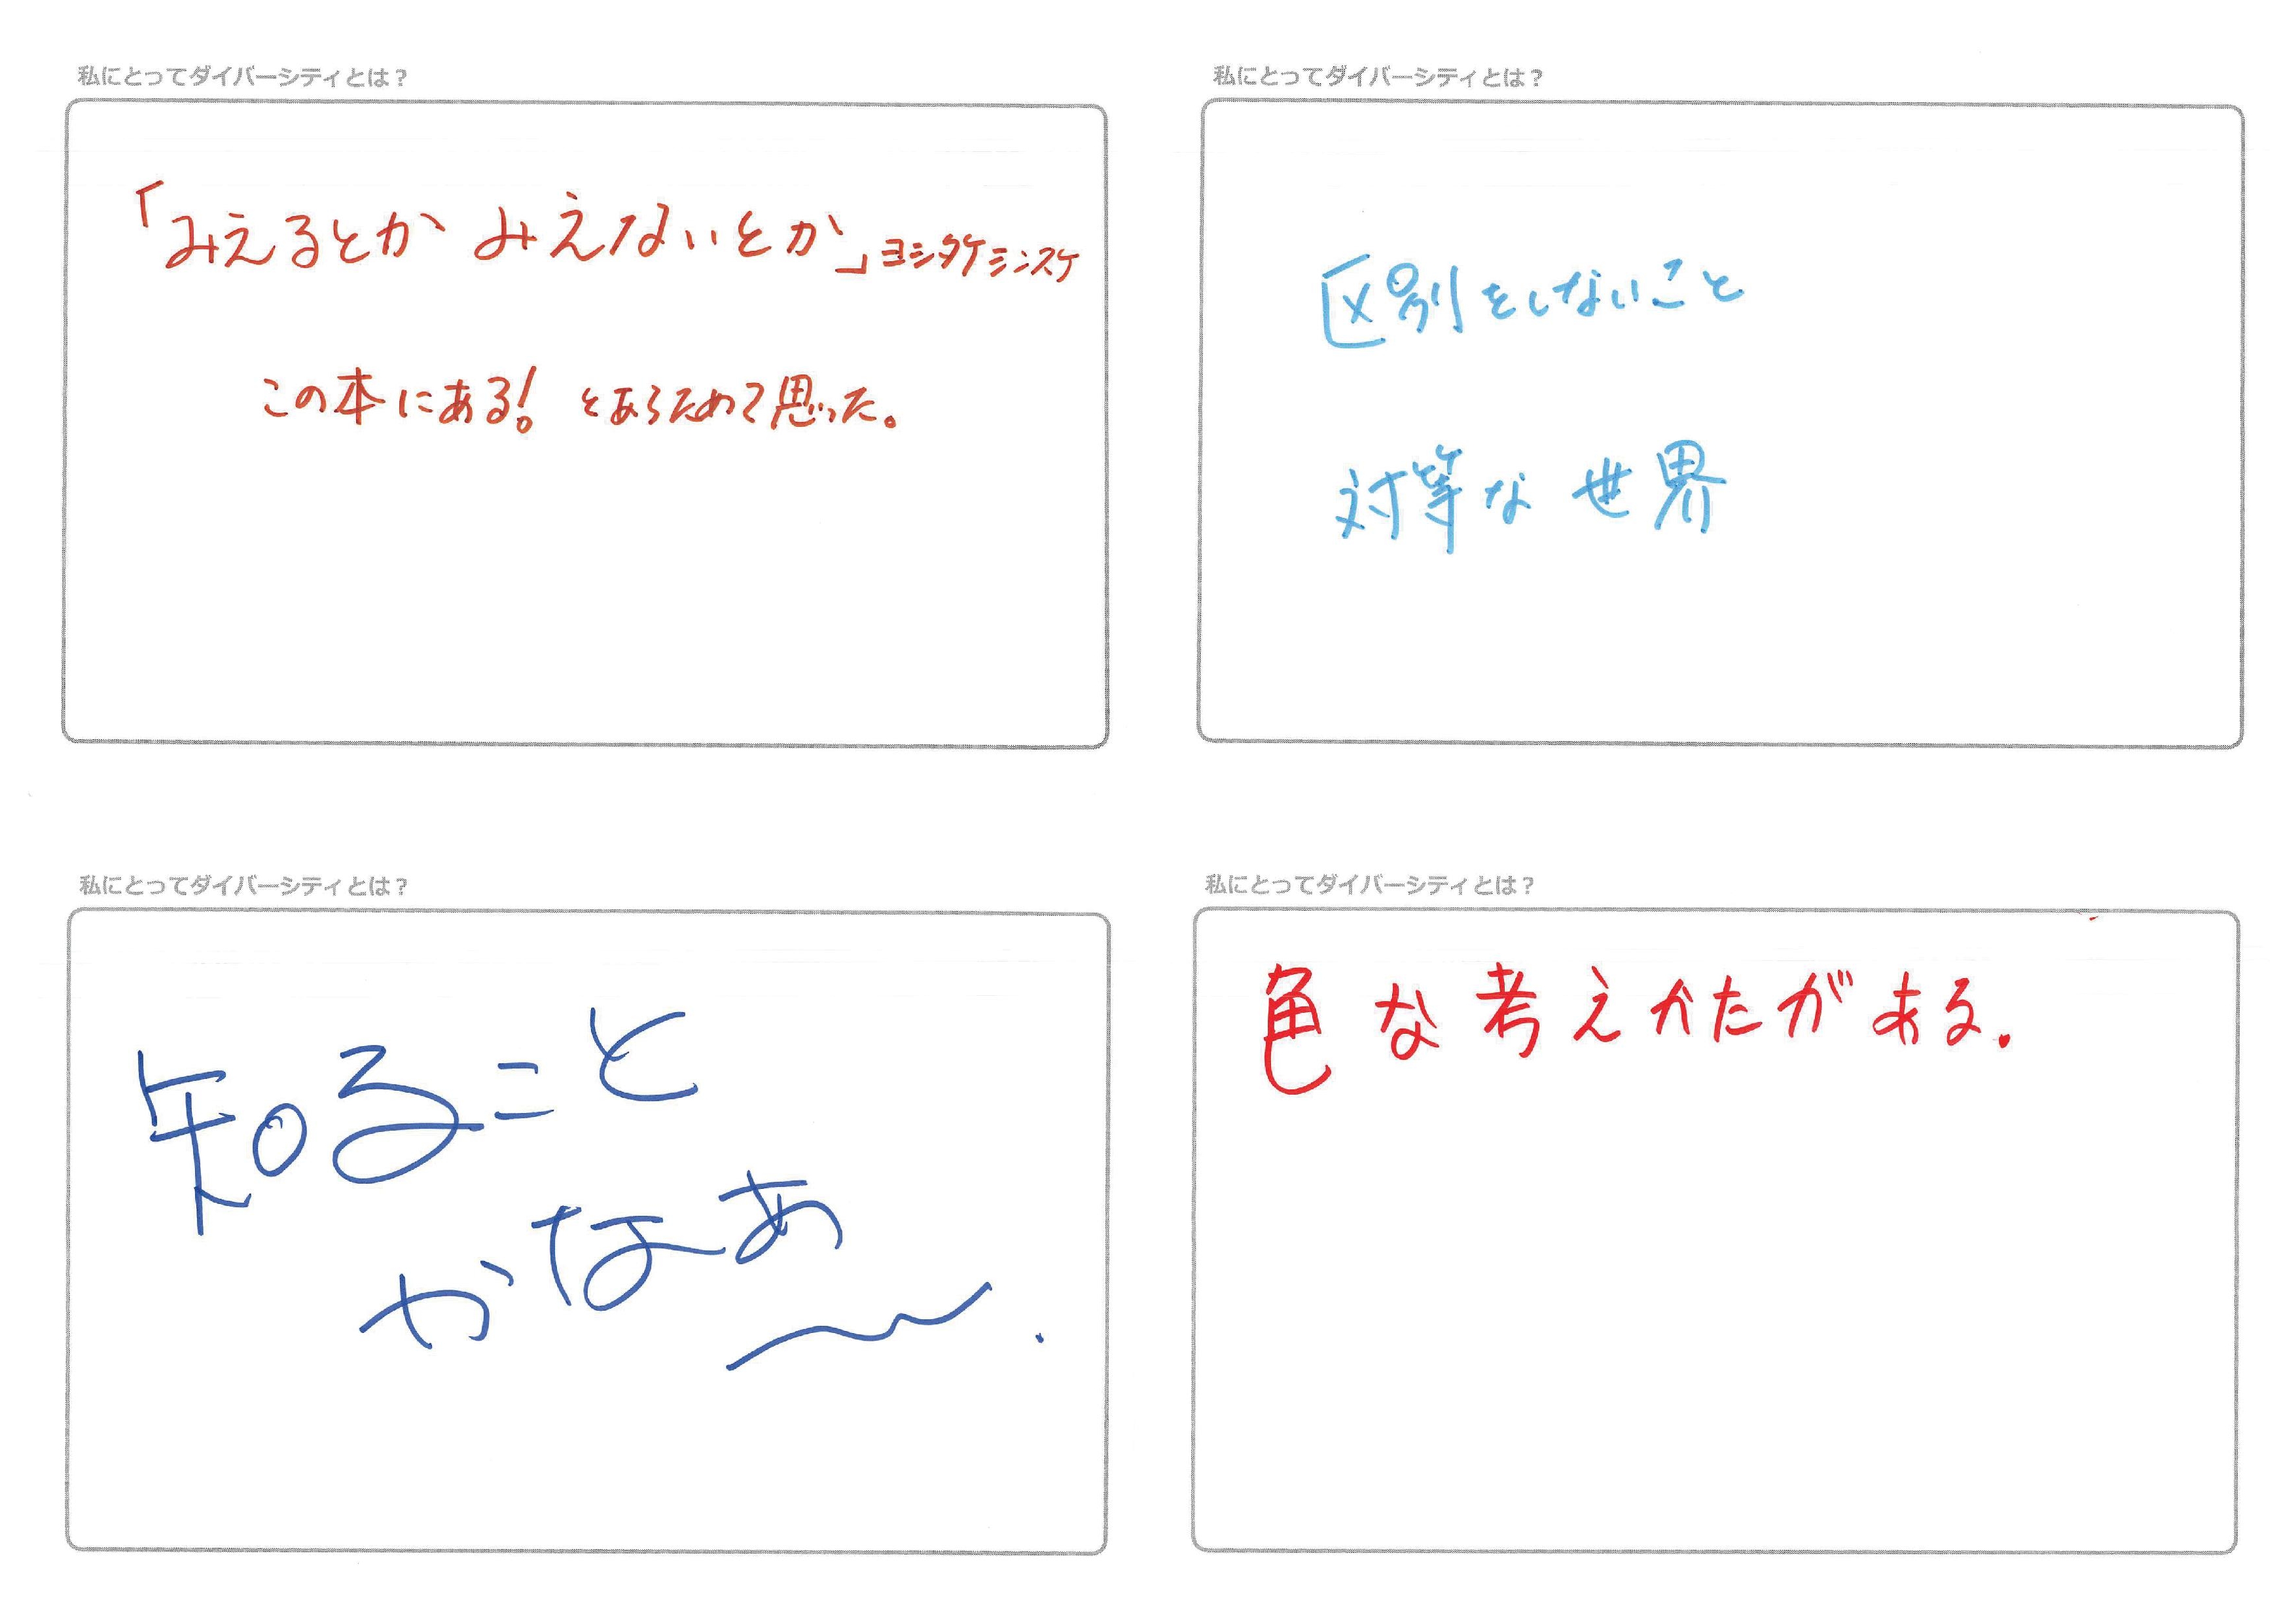 私にとってダイバーシティとは？
「みえるとか みえないとか」ヨシタケシンスケ
この本にある！とあらためて思った。
私にとってダイバーシティとは？
区別をしないこと
対等な世界
私にとってダイバーシティとは？
知ること
かなぁ
私にとってダイバーシティとは？
色な考えかたがある.